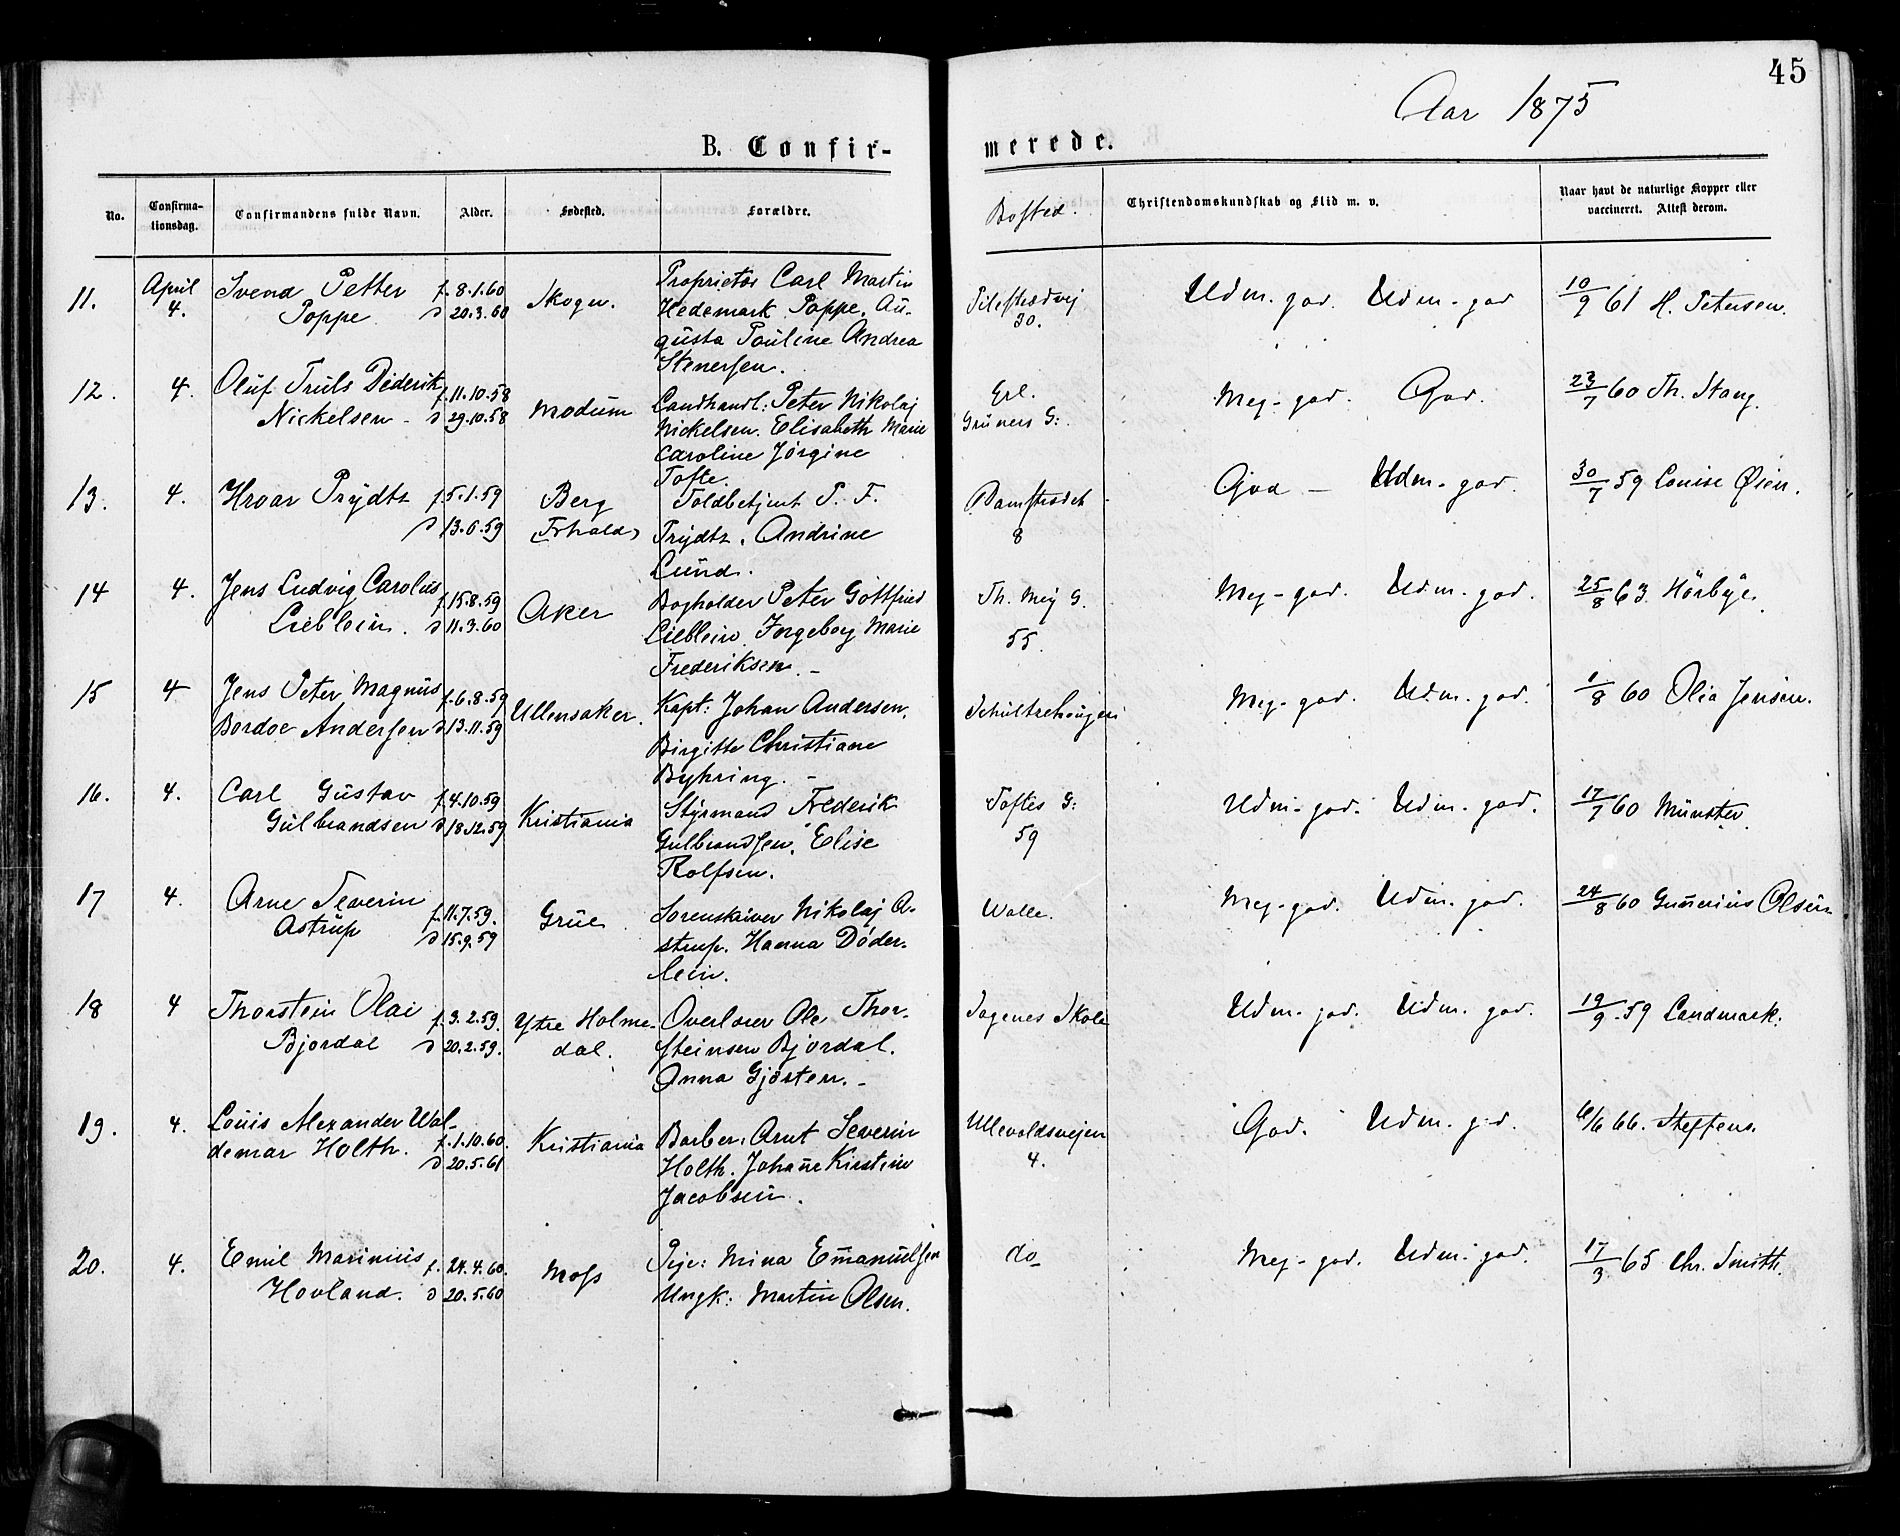 45
Aar 1875
B. Confir-
merede.
No.
Confirma-
tionsdag.
Confirmandens fulde Navn.
Alder.
Fødested.
Forældre.
Bosted.
Christendomskundskab og Flid m. v.
Naar havt de naturlige Kopper eller
vaccineret. Attest derom.
11. April 4. Svend Petter Poppe f. 8.1.60 d 20.3.60 Skogn. Proprietær Carl Martin
Hedemark Poppe. Au-
gusta Pauline Andrea
Stenersen.
Pilestrædvej 30. Udm. god. Udm. god 10/9 61 H. Petersen.
12. 4. Oluf Truls Diderik
Nickelsen - f. 11.10.58 d 29.10.58 Modum Landhandl: Peter Nikolaj
Nickelsen. Elisabeth Marie
Caroline Jørgine
Tofte.
Grl.
Grüners G: Meg- god. God. 23/7 60 Th. Stang.
13. 4. Hroar Prydtz f. 5.1.59 d 13.6.59 Berg
Frhald. Toldbetjent P. F.
Prydtz. Andrine
Lund.
Damstrædet
8 God - Udm. god. 30/7 59 Louise Øien.
14 4. Jens Ludvig Carolus
Lieblein. f. 15.8.59 d 11.3.60 Aker Bogholder Peter Gottfried
Lieblein Ingeborg Marie
Frederiksen. -
Th. Mey G.
55. Meg- god. Udm. god. 25/8 63 Hörbye.
15 4 Jens Peter Magnus
Bordoe Andersen f. 6.8.59 d 13.11.59 Ullensaker. Kapt: Johan Andersen.
Birgitte Christiane
Byhring. -
Meg- god. Udm. god. 1/8 60 Olia Jensen.
16. 4. Carl Gustav
Gulbrandsen f. 4.10.59 d 18.12.59 Kristiania Styrmand Frederik
Gulbrandsen. Elise
Rolfsen.
Toftes G:
59 Udm- god. Udm. god. 17/7 60 Münster.
17 4. Arne Severin
Astrup f. 11.7.59. d 15.9.59 Grue. Sorenskriver Nikolaj A-
strup. Hanna Döder-
lein.
Wolle. Meg- god. Udm. god. 24/8 60 Gunerius Olsen
18 4 Thorstein Olai
Bjordal f. 3.2.59. d 20.2.59. Ytre Holme-
dal. Overlærer Ole Thor-
steinsen Bjordal.
Anna Gjøsten. -
Sagenes Skole Udm. god. Udm. god. 19/9 59 Landmark.
19. 4. Louis Alexander Wal-
demar Holth. f. 1.10.60. d 20.5.61 Kristiania Barber: Arnt Severin
Holth. Johane Kirstine
Jacobsen.
Ullevoldsvejen
4. God. Udm. god. 6/6 66. Steffens.
20. 4. Emil Marinius
Hovland. f. 24.4.60. d 20.5.60 Moss Pige: Mina Emanuelsen
Ungk: Martin Olsen.
do Meg- god. Udm. god. 17/3 65 Chr. Smith.